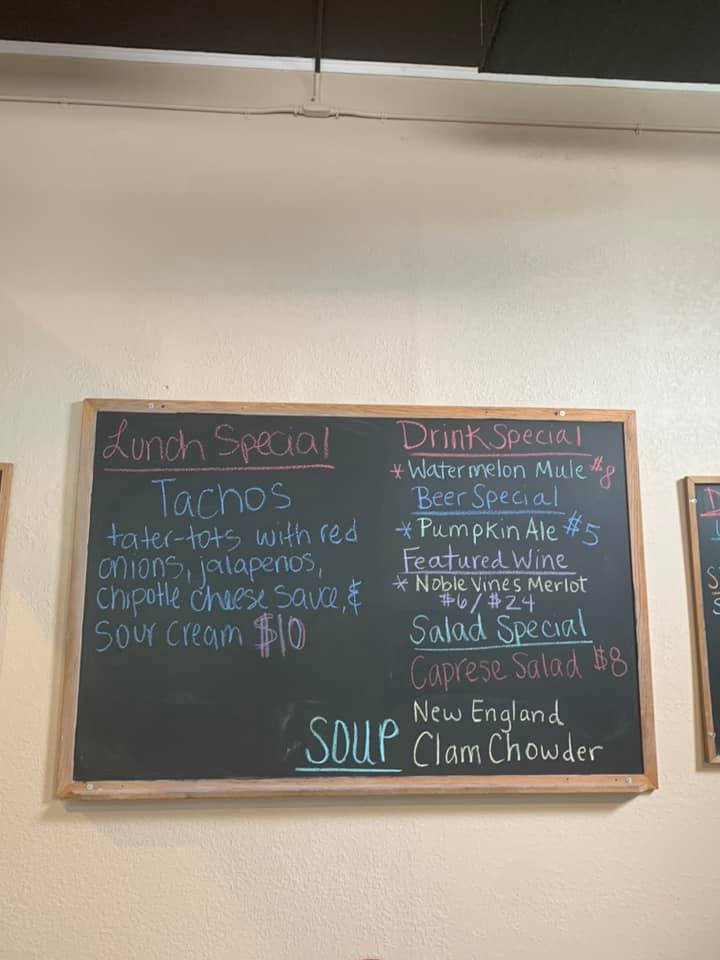 Lunch Special
Tachos
tater-tots with red
onions, jalapenos,
chipotle cheese sauce, &
sour cream $10
Drink Special
* Watermelon Mule $8
Beer Special
* Pumpkin Ale $5
Featured Wine
* Noble Vines Merlot
$6/$24
Salad Special
Caprese Salad $8
SOUP
New England
Clam Chowder